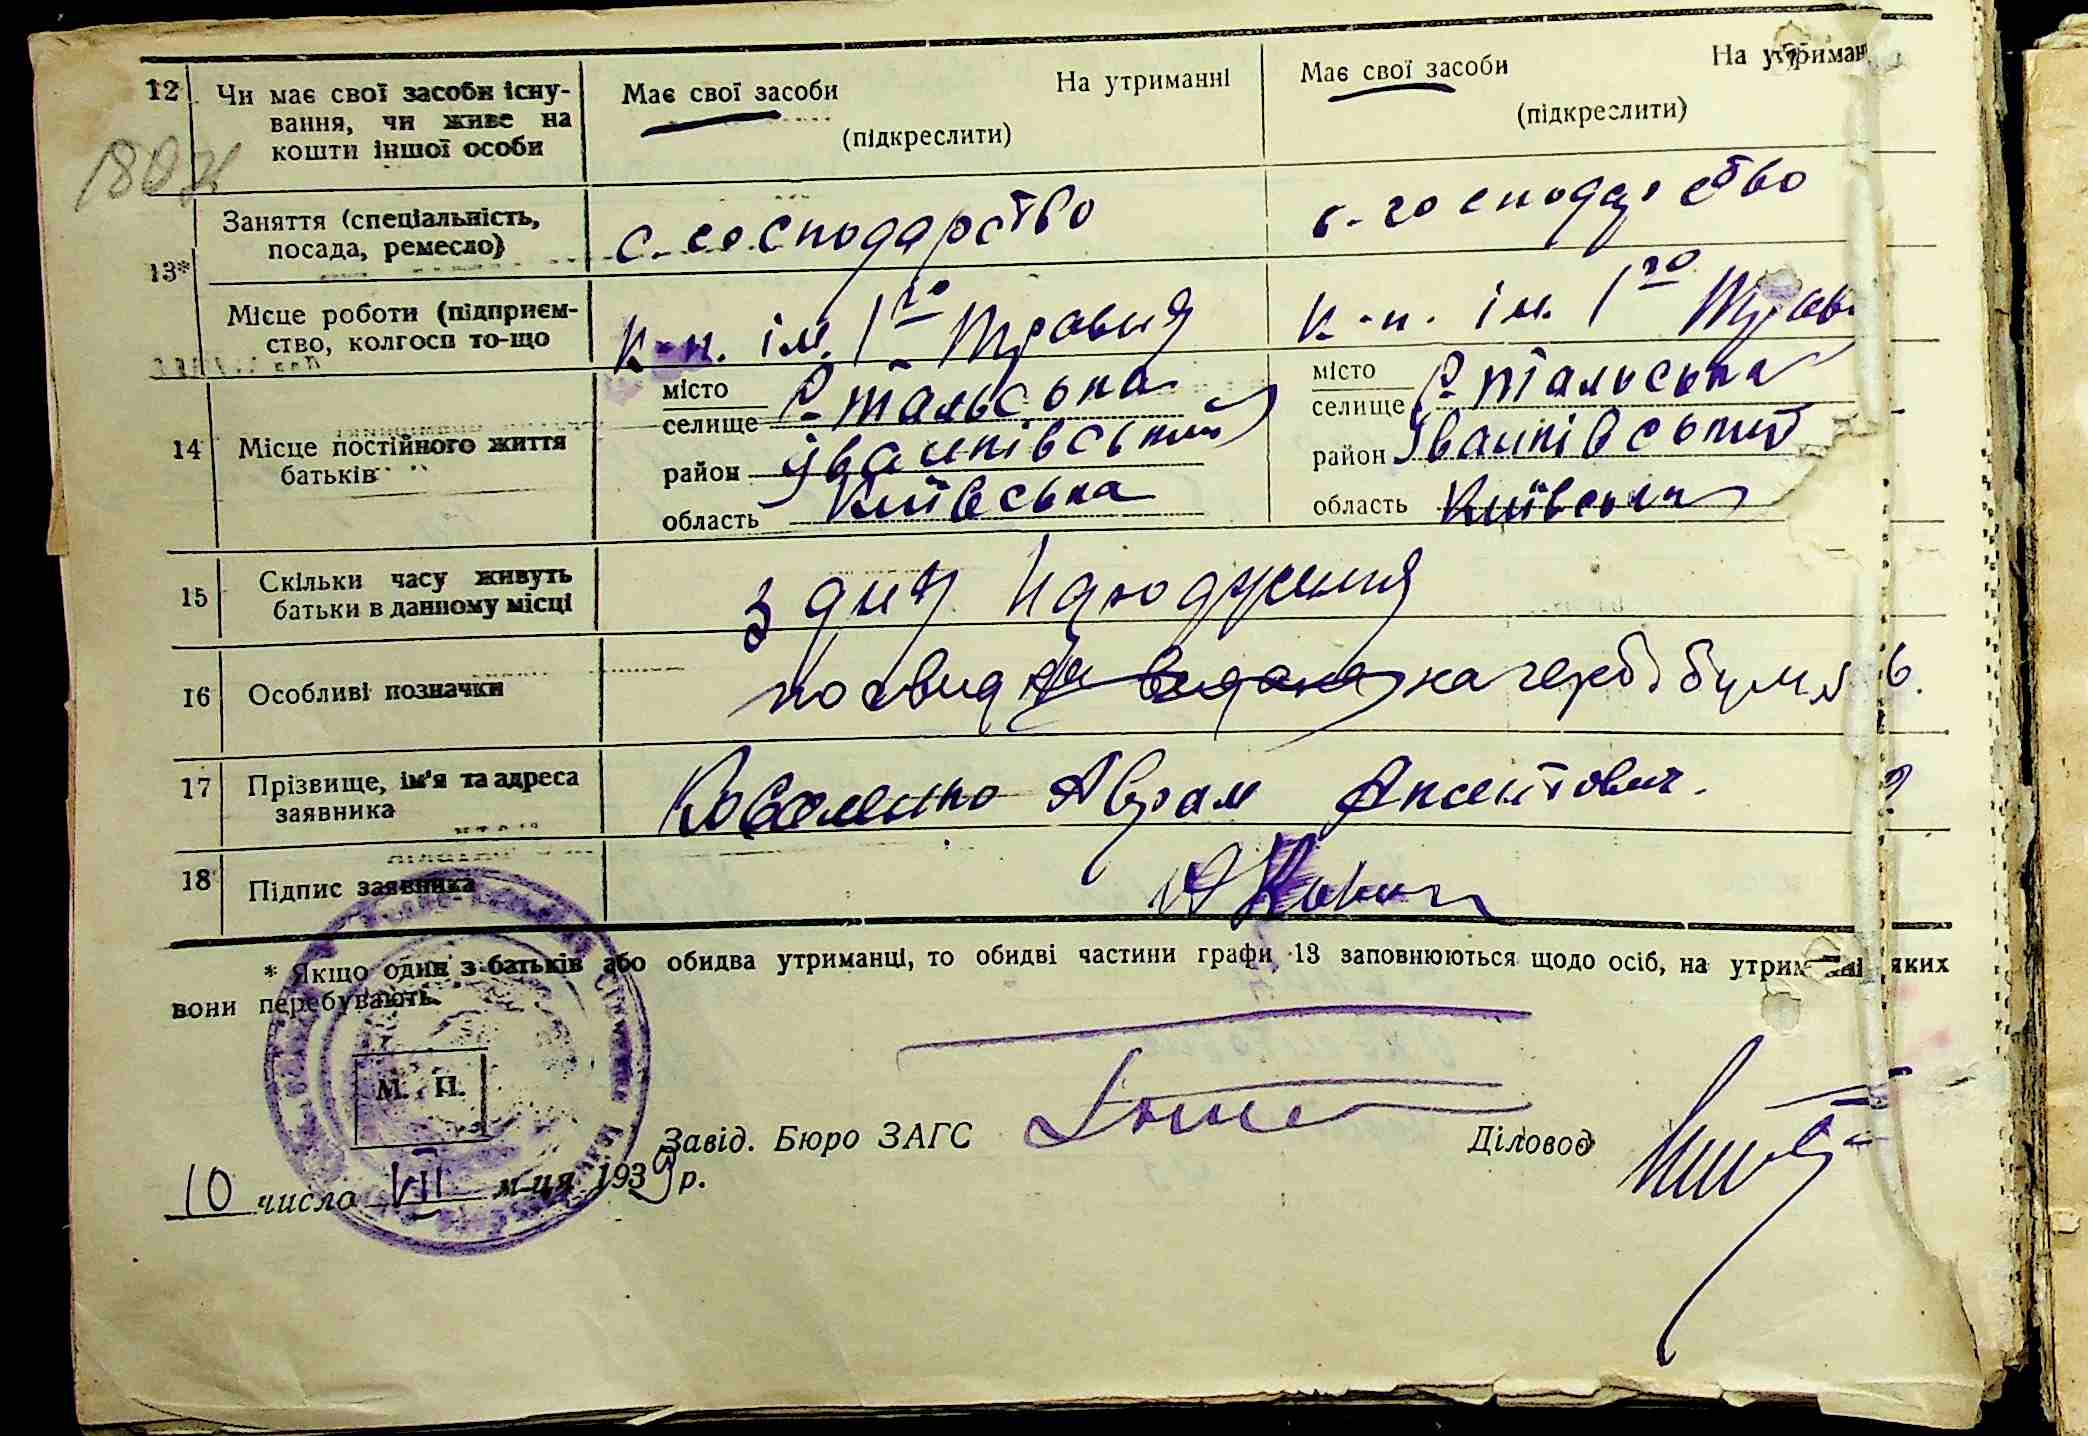 12 Чи має свої засоби існу-
вання, чи живе на
кошти іншої особи
Має свої засоби На утриманні
(підкреслити)
Має свої засоби На утриман
(підкреслити)
13*
Заняття (спеціальність,
посада, ремесло)
с. господарство
с-господарство
Місце роботи (підприєм-
ство, колгосп то-що
к-п. ім. 1го Травня
к-п. ім. 1го Травн
14 Місце постійного життя
батьків
місто
селище Р-Тальська
район Іванківський
область Київська
місто
селище Р-Тальська
район Іванківський
область Київська
15 Скільки часу живуть
батьки в данному місці
З дня народження
16 Особливі позначки
видана на герб.
17 Прізвище, ім'я та адреса
заявника
Коваленко Аврам Аксентович.
18 Підпис заявника
* Якщо один з батьків або обидва утриманці, то обидві частини графи 13 заповнюються щодо осіб, на утриманні яких
вони перебувають.
М. П.
Завід. Бюро ЗАГС
Діловод
10 число VII м-ця 1939 р.